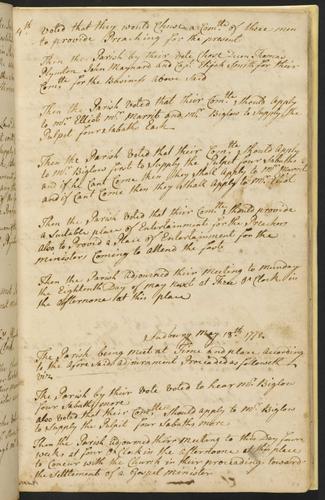 4th voted that their wont Chuse a Comtt of three men
to provide Preaching for the present
Then the Parish by their Vote Chose Deen Thomas
Plymton John Maynard and Capt Elijah Smith for their
Comtt for the Business above said
Then the Parish voted that their Comtt Should apply
to mr Elliot mr Marrett and mr Biglow to Supply the
Pulpit four Sabaths Each
Then the Parish voted that their Comtt Should Apply
to mr Biglow first to Supply the Pulpit four Sabaths
and if he Cant Come then they Shall apply to mr Marrett
and if Cant Come then they Shall Apply to mr Eliot
Then the Parish voted that their Comtt Should provide
a Sutable place of Entertainment for the Preachers
also to Provid a Place of Entertainment for the
ministers Coming to attend the fast
Then the Parish adjourned their meeting to munday
the Eighteenth Day of may next at Five oClock in
the afternoone at this place
Sudbury May 18th 177
The Parish being meet at Time and place according
to the afore said adjournment Proceaded as followeth
viz
The Parish by their vote voted to hear mr Biglow
four Sabaths more
also voted that their Comtt Should apply to mr Biglow
to Supply the Pulpit four Sabaths more
Then the Parish adjourned their meeting to this Day four
weeks at four oClock in the afternoone at this place
to Concur with the Church in their proceadings toward
the Settlement of a Gospel minister